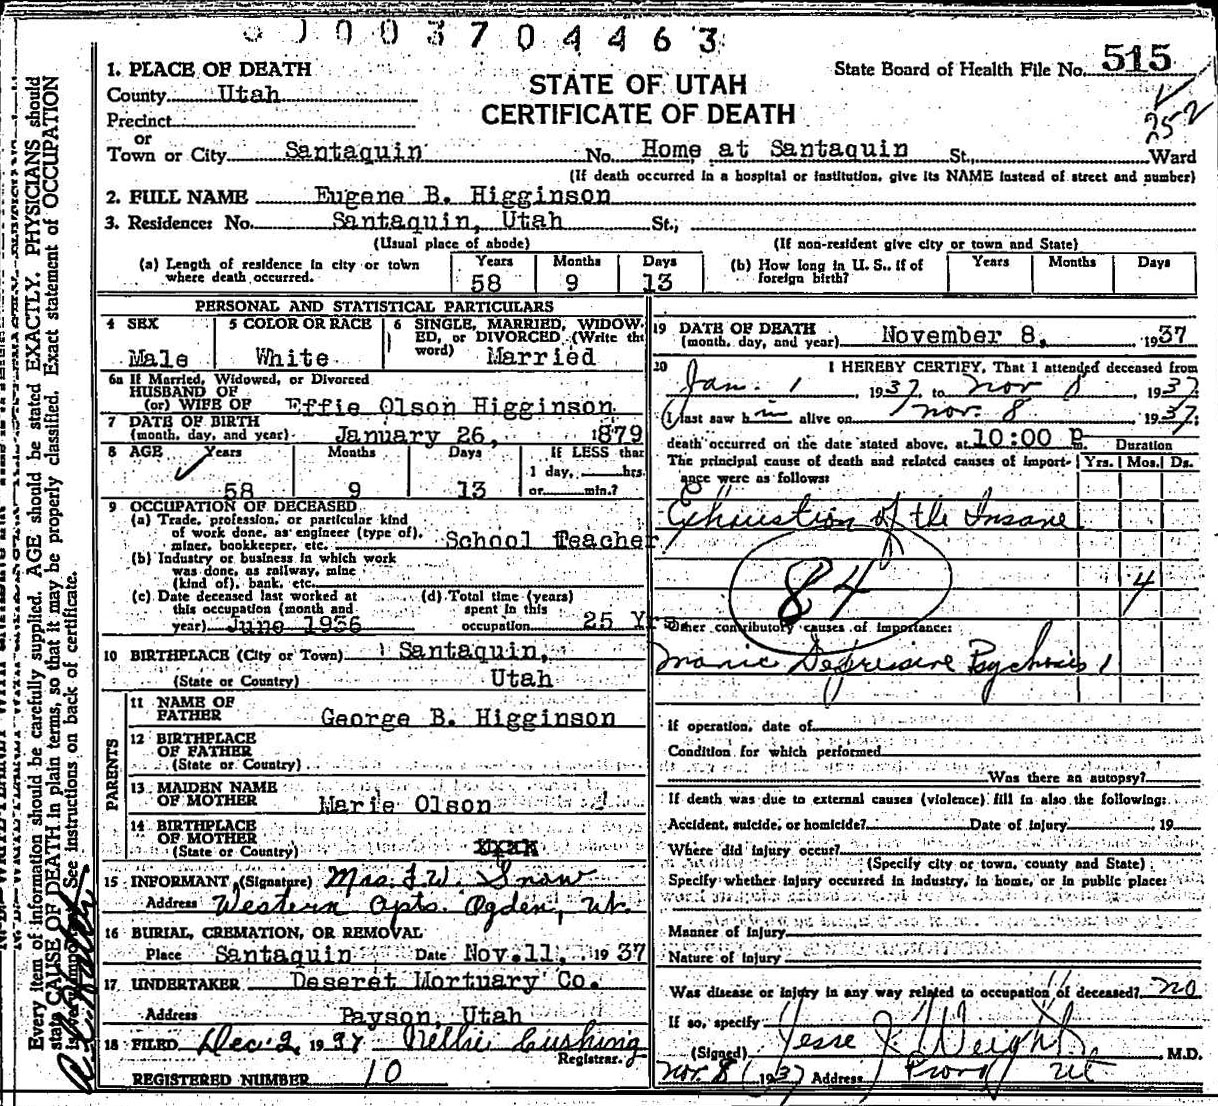 0 0 0 3 7 0 4 4 6 3
State Board of Health File No. 515
252
STATE OF UTAH
CERTIFICATE OF DEATH
1. PLACE OF DEATH
County Utah
Precinct
or
Town or City Santaquin No. Home at Santaquin St., Ward
(If death occurred in a hospital or institution, give its NAME instead of street and number)
2. FULL NAME Eugene B. Higginson
3. Residence: No. Santaquin, Utah St.,
(Usual place of abode) (If non-resident give city or town and State)
(a) Length of residence in city or town where death occurred. Years 58 Months 9 Days 13
(b) How long in U. S., if of foreign birth? Years Months Days
PERSONAL AND STATISTICAL PARTICULARS
4 SEX Male
5 COLOR OR RACE White
6 SINGLE, MARRIED, WIDOWED, or DIVORCED (Write the word) Married
6a If Married, Widowed, or Divorced
HUSBAND OF
(or) WIFE OF Effie Olson Higginson
7 DATE OF BIRTH
(month, day, and year) January 26, 1879
8 AGE Years 58 Months 9 Days 13 If LESS than
1 day, hrs.
or min.?
9 OCCUPATION OF DECEASED
(a) Trade, profession, or particular kind
of work done, as engineer (type of),
miner, bookkeeper, etc. School Teacher
(b) Industry or business in which work
was done, as railway, mine
(kind of), bank, etc.
(c) Date deceased last worked at
this occupation (month and
year) June 1936
(d) Total time (years)
spent in this
occupation 25 Yrs.
10 BIRTHPLACE (City or Town) Santaquin,
(State or Country) Utah
PARENTS
11 NAME OF
FATHER George B. Higginson
12 BIRTHPLACE
OF FATHER
(State or Country)
13 MAIDEN NAME
OF MOTHER Marie Olson
14 BIRTHPLACE
OF MOTHER
(State or Country)
15 INFORMANT (Signature) Mrs. F. W. Snow
Address Western Apts. Ogden, Ut.
16 BURIAL, CREMATION, OR REMOVAL
Place Santaquin Date Nov. 11, 1937
17 UNDERTAKER Deseret Mortuary Co.
Address Payson, Utah
18 FILED Dec 2, 1937 Nellie Cushing
Registrar.
REGISTERED NUMBER 10
19 DATE OF DEATH
(month, day, and year) November 8, 1937
20 I HEREBY CERTIFY, That I attended deceased from
Jan. 1, 1937, to Nov 8, 1937
I last saw him alive on Nov. 8 1937;
death occurred on the date stated above, at 10:00 P m.
The principal cause of death and related causes of importance were as follows:
Duration
Yrs. Mos. Ds.
Exhaustion of the Insane
84
4
Other contributory causes of importance:
Manic Depressive Psychosis 1
If operation, date of
Condition for which performed
Was there an autopsy?
If death was due to external causes (violence) fill in also the following:
Accident, suicide, or homicide? Date of injury 19
Where did injury occur?
(Specify city or town, county and State)
Specify whether injury occurred in industry, in home, or in public place:
Manner of injury
Nature of injury
Was disease or injury in any way related to occupation of deceased? no
If so, specify
(Signed) Jesse J. Weight M.D.
Nov. 8 1937 Address Provo Ut
Every item of information should be carefully supplied. AGE should be stated EXACTLY. PHYSICIANS should
state CAUSE OF DEATH in plain terms, so that it may be properly classified. Exact statement of OCCUPATION
See instructions on back of certificate.